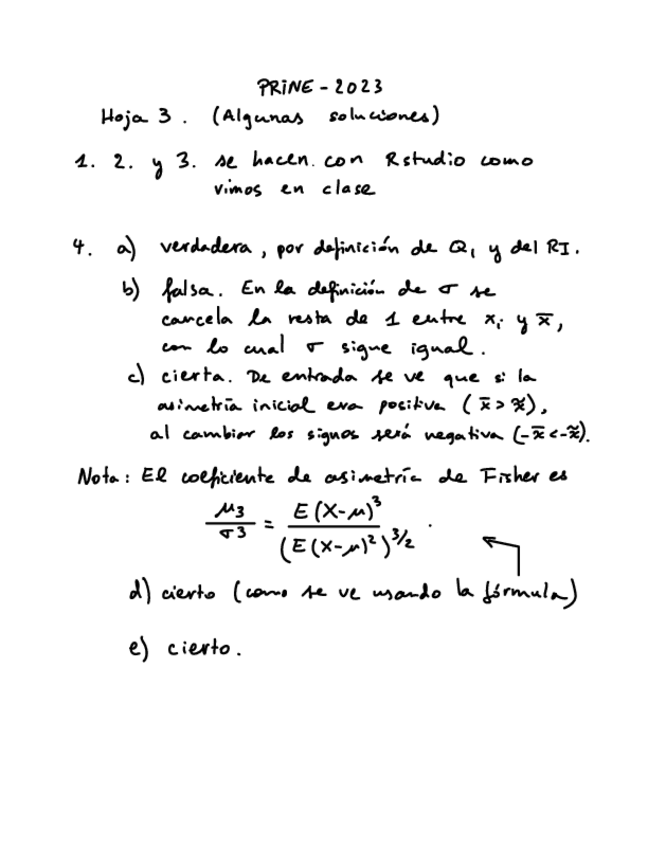 PRINE - 2023
Hoja 3. (Algunas soluciones)
1. 2. y 3. se hacen. con Rstudio como
vimos en clase
4. a) verdadera, por definición de Q₁ y del RI.
b) falsa. En la definición de σ se
cancela la resta de 1 entre xᵢ y x̄,
con lo cual σ sigue igual.
c) cierta. De entrada se ve que si la
asimetría inicial era positiva (x̄ > x̃),
al cambiar los signos será negativa (-x̄ < -x̃).
Nota: El coeficiente de asimetría de Fisher es
μ₃/σ³ = E(X-μ)³/(E(X-μ)²)^3/2.
d) cierto (como se ve usando la fórmula)
e) cierto.